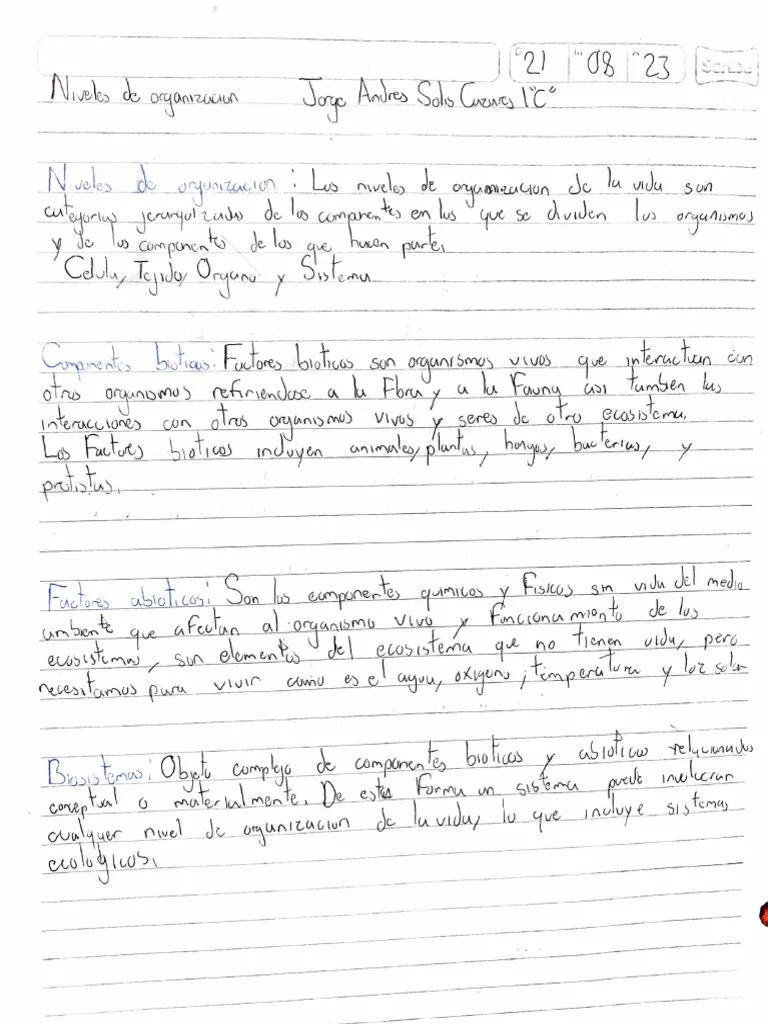 21 08 23
Scribe
Niveles de organizacion Jorge Andres Solis 1"C"
Niveles de organizacion: Los niveles de organizacion de la vida son
categorias jerarquizado de los componentes en los que se dividen los organismos
y de los componento de los que hacen parte.
Celula, Tejido, Organo y Sistema
Componentes bioticos: Factores bioticos son organismos vivos que interactuan con
otros organismos refiriendose a la Flora y a la Fauna asi tambien las
interacciones con otros organismos vivos y seres de otro ecosistema.
Los Factores bioticos incluyen animales, plantas, hongos, bacterias, y
protistas.
Factores abioticos: Son los componentes quimicos y Fisicos sin vida del medio
ambiente que afectan al organismo vivo y Funcionamiento de los
ecosistemas, son elementos del ecosistema que no tienen vida, pero
necesitamos para vivir como es el agua, oxigeno, temperatura y luz solar
Biosistemas: Objeto complejo de componentes bioticos y abioticos relacionados
conceptual o materialmente. De esta Forma un sistema puede involucrar
cualquer nivel de organizacion de la vida, lo que incluye sistemas
ecologicos.